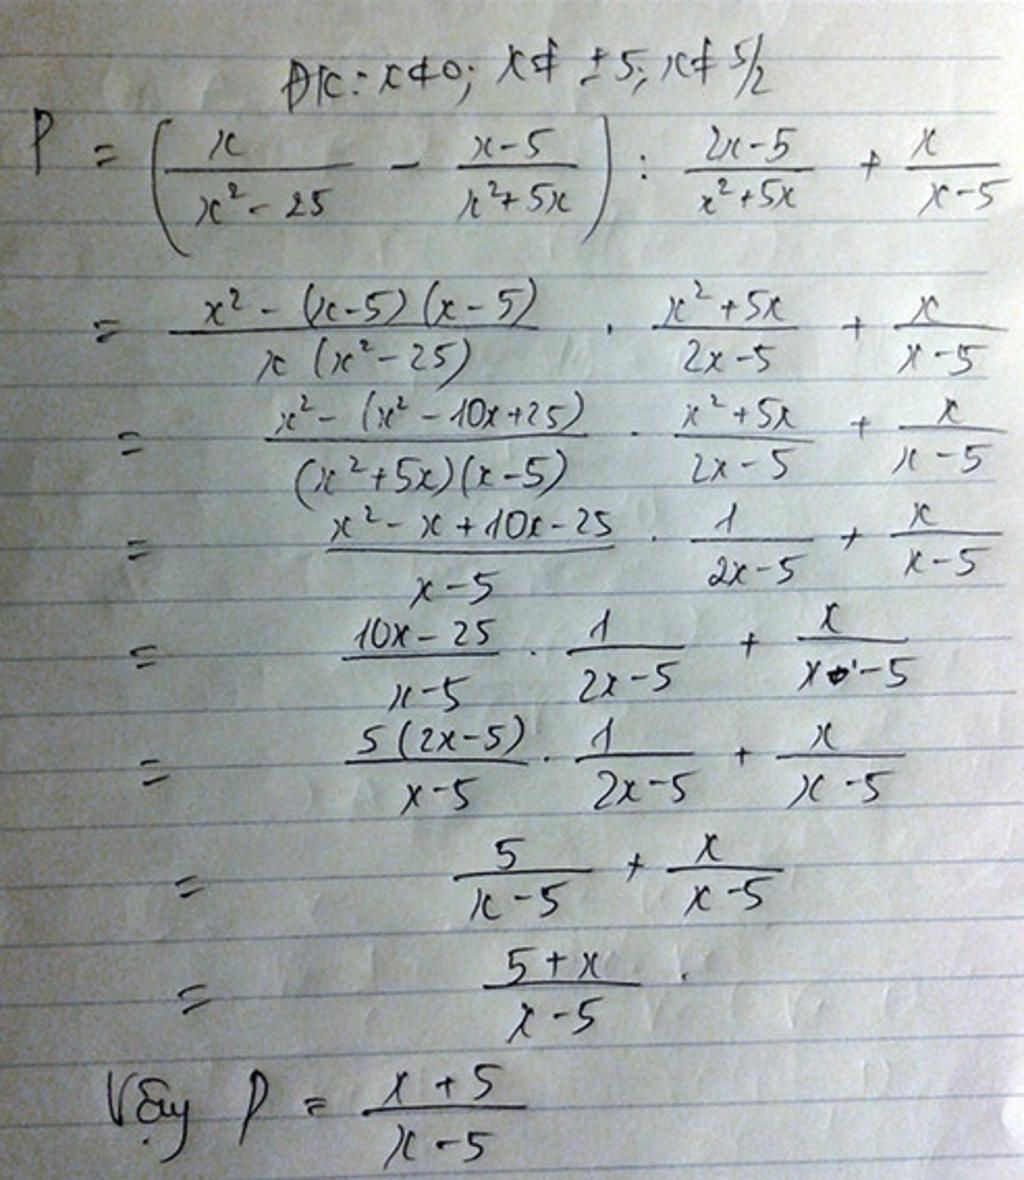 ĐK: x ≠ 0; x ≠ ±5; x ≠ 5/2
P = (x/(x² - 25) - (x-5)/(x²+5x)) : (2x-5)/(x²+5x) + x/(x-5)
= (x² - (x-5)(x-5))/(x(x²-25)) . (x²+5x)/(2x-5) + x/(x-5)
= (x² - (x² - 10x+25))/((x²+5x)(x-5)) . (x²+5x)/(2x-5) + x/(x-5)
= (x² - x + 10x - 25)/(x-5) . 1/(2x-5) + x/(x-5)
= (10x - 25)/(x-5) . 1/(2x-5) + x/(x-5)
= (5(2x-5))/(x-5) . 1/(2x-5) + x/(x-5)
= 5/(x-5) + x/(x-5)
= (5+x)/(x-5) .
Vậy P = (x+5)/(x-5)